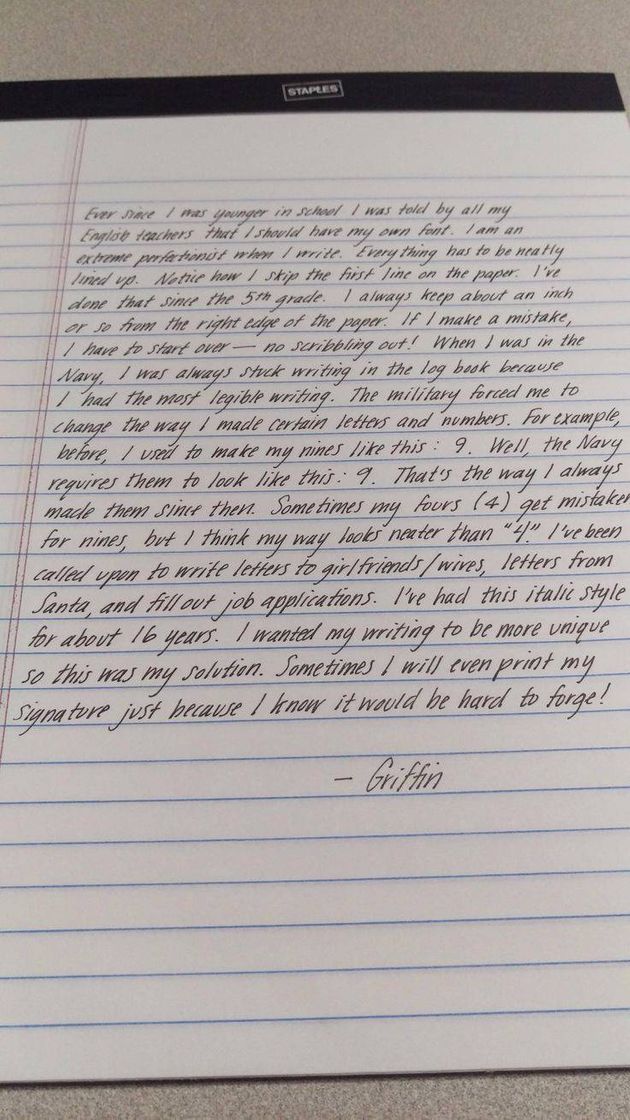 STAPLES
Ever since I was younger in school I was told by all my
English teachers that I should have my own font. I am an
extreme perfectionist when I write. Everything has to be neatly
lined up. Notice how I skip the first line on the paper. I've
done that since the 5th grade. I always keep about an inch
or so from the right edge of the paper. If I make a mistake,
I have to start over — no scribbling out! When I was in the
Navy, I was always stuck writing in the log book because
I had the most legible writing. The military forced me to
change the way I made certain letters and numbers. For example,
before, I used to make my nines like this: 9. Well, the Navy
requires them to look like this: 9. That's the way I always
made them since then. Sometimes my fours (4) get mistaken
for nines, but I think my way looks neater than "4." I've been
called upon to write letters to girlfriends/wives, letters from
Santa, and fill out job applications. I've had this italic style
for about 16 years. I wanted my writing to be more unique
so this was my solution. Sometimes I will even print my
signature just because I know it would be hard to forge!
— Griffin